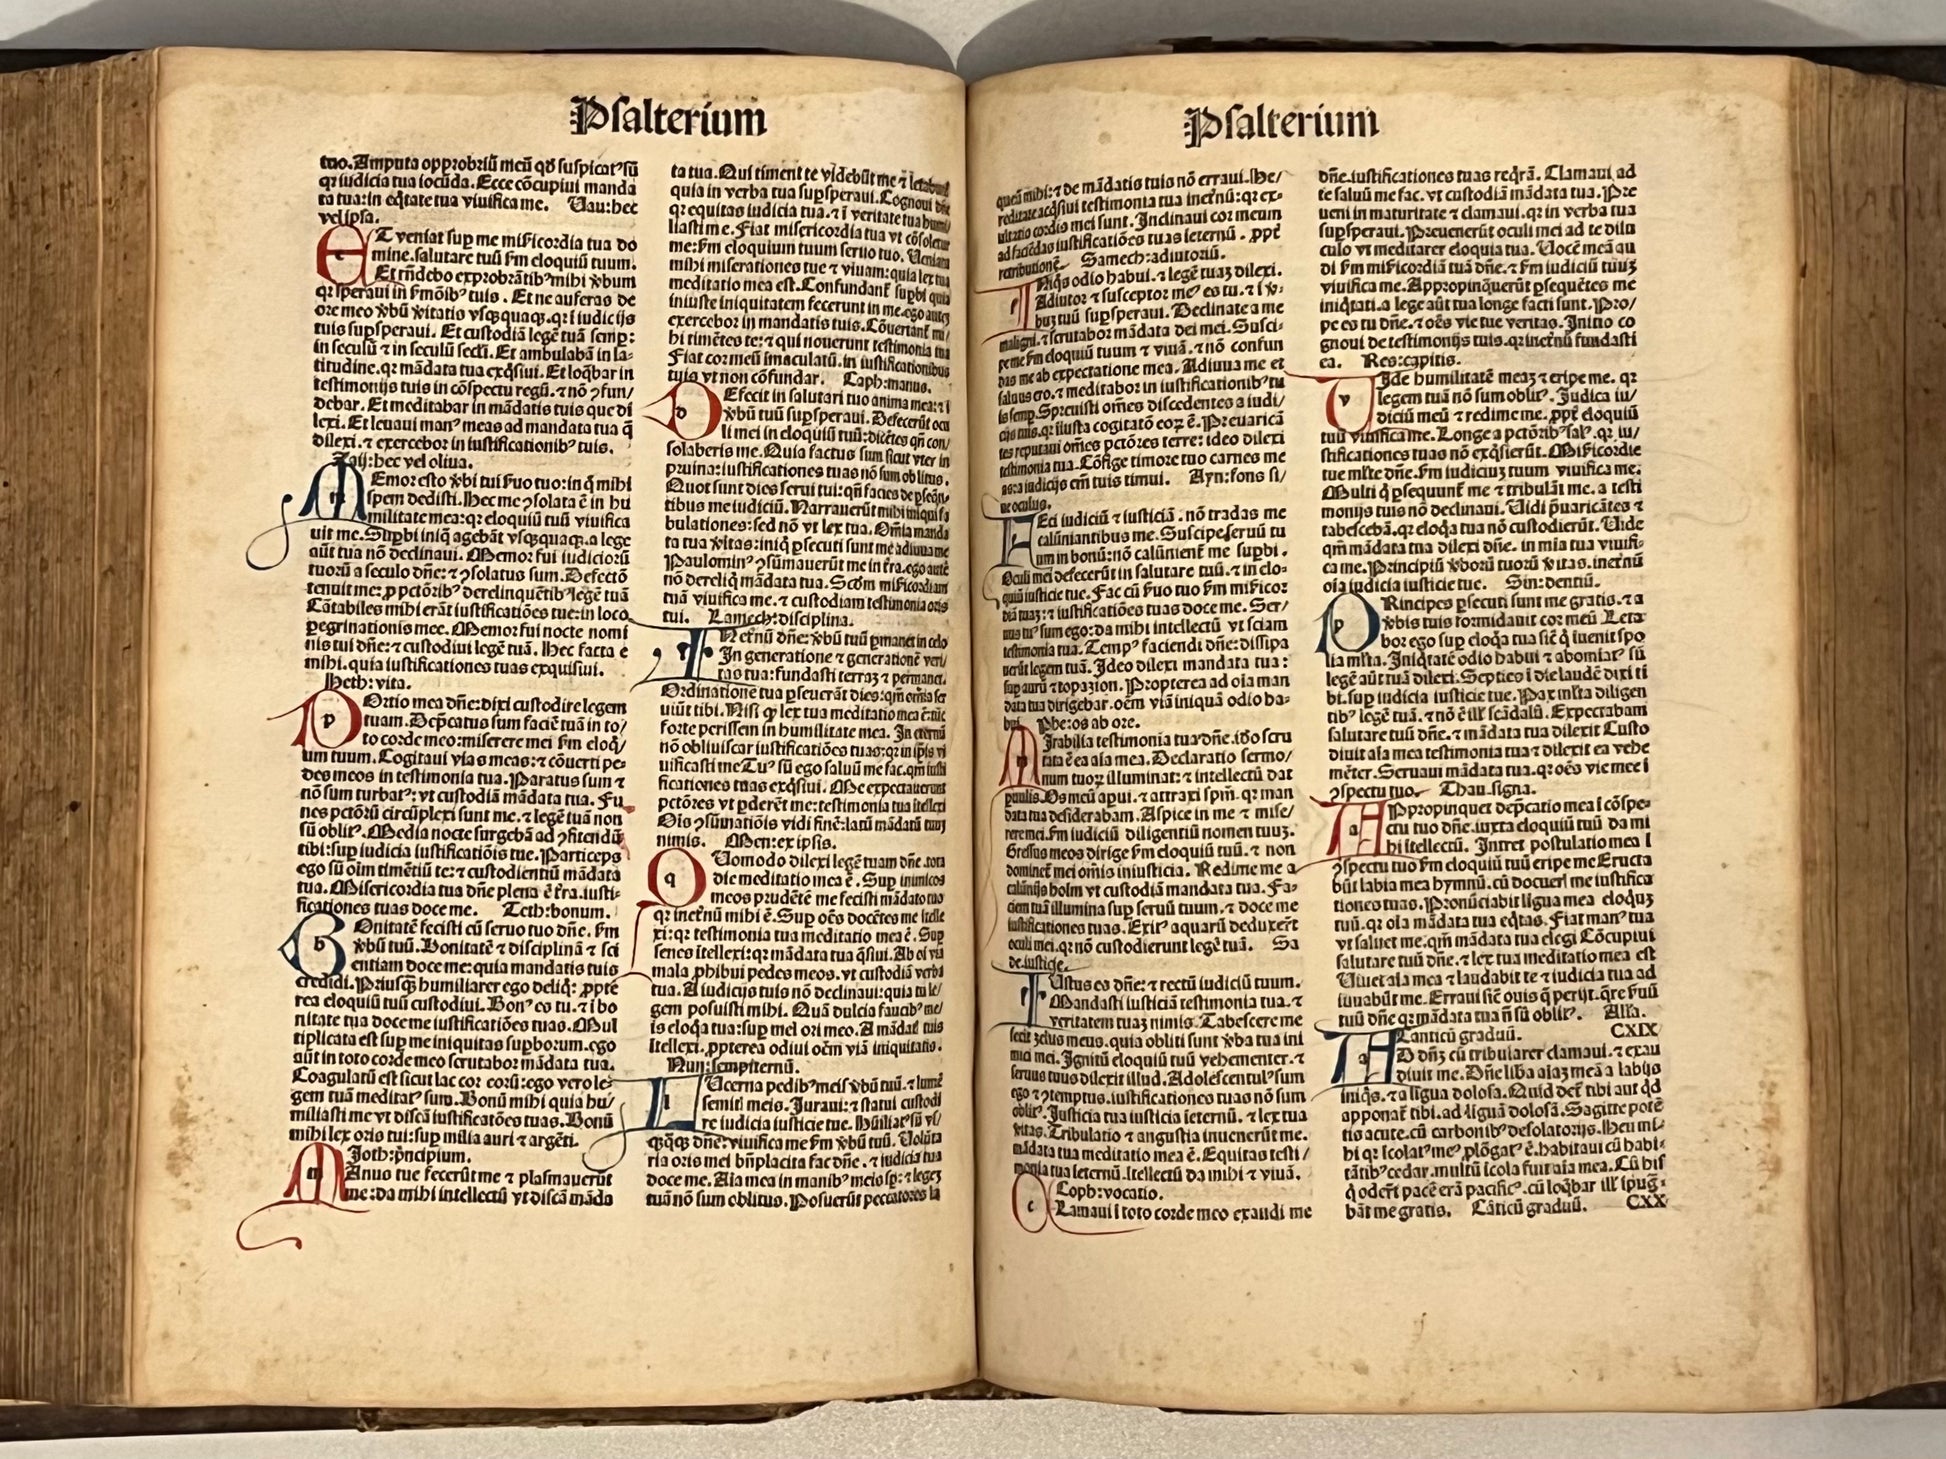 Psalterium
tuo. Amputa opprobriū meū qđ suspicatꝰ sū
qꝛ iudicia tua iocūda. Ecce cōcupiui manda
ta tua: in eq̄tate tua viuifica me. Uau: hec
vel ipsa.
ET veniat suꝑ me mīscordia tua do
mine. salutare tuū ẜm eloquiū tuum.
Et rn̄debo exprobrātibꝰ mihi v̄bum
qꝛ speraui in ẜmōibꝰ tuis. Et ne auferas de
ore meo v̄bū v̄itatis vsq̄quaq̄. qꝛ ī iudicijs
tuis suꝑsperaui. Et custodiā legē tuā semp:
in seculū ⁊ in seculū secłi. Et ambulabā in la-
titudine. qꝛ mādata tua exq̄siui. Et loq̄bar in
testimonijs tuis in cōspectu regū. ⁊ nō ꝯfun/
debar. Et meditabar in mādatis tuis que di
lexi. Et leuaui manꝰ meas ad mandata tua q̄
dilexi. ⁊ exercebor in iustificationibꝰ tuis.
Zaij: hec vel oliua.
MEmor esto v̄bi tui ẜuo tuo: in q̄ mihi
spem dedisti. Hec me ꝯsolata ē in hu
militate mea: qꝛ eloquiū tuū viuifica
uit me. Suꝑbi iniq̄ agebāt vsq̄quaq̄. a lege
aūt tua nō declinaui. Memor fui iudicioꝝ
tuoꝝ a seculo dn̄e: ⁊ ꝯsolatus sum. Defectō
tenuit me: ꝓ pctōribꝰ derelinquētibꝰ legē tuā
Cātabiles mihi erāt iustificatiōes tue: in loco
ꝑegrinationis mee. Memor fui nocte nomi
nis tui dn̄e: ⁊ custodiui legē tuā. Hec facta ē
mihi. quia iustificationes tuas exquisiui.
Heth: vita.
POrtio mea dn̄e: dixi custodire legem
tuam. Dep̄catus sum faciē tuā in to/
to corde meo: miserere mei ẜm eloq̄/
um tuum. Cogitaui vias meas: ⁊ cōuerti pe-
des meos in testimonia tua. Paratus sum ⁊
nō sum turbatꝰ: vt custodiā mādata tua. Fu
nes pctōꝝ circūplexi sunt me. ⁊ legē tuā non
sū oblitꝰ. Media nocte surgebā ad ꝯfitendū
tibi: suꝑ iudicia iustificatiōis tue. Particeps
ego sū oīm timētiū te: ⁊ custodientiū mādata
tua. Misericordia tua dn̄e plena ē t̄ra. iusti-
ficationes tuas doce me. Teth: bonum.
BOnitatē fecisti cū seruo tuo dn̄e. ẜm
v̄bū tuū. Bonitatē ⁊ disciplinā ⁊ sci
entiam doce me: quia mandatis tuis
credidi. Priusq̄ humiliarer ego deliq̄: ꝓpte
rea eloquiū tuū custodiui. Bonꝰ es tu. ⁊ ī bo
nitate tua doce me iustificatiōes tuas. Mul
tiplicata est suꝑ me iniquitas suꝑboꝝ. ego
aūt in toto corde meo scrutabor mādata tua.
Coagulatū est sicut lac cor coꝝ: ego vero le-
gem tuā meditatꝰ sum. Bonū mihi quia hu/
miliasti me vt discā iustificatōes tuas. Bonū
mihi lex oris tui: suꝑ milia auri ⁊ argēti.
Joth: p̄ncipium.
MAnus tue fecerūt me ⁊ plasmauerūt
me: da mihi intellectū vt discā māda
ta tua. Qui timent te videbūt me ⁊ letabunt
quia in verba tua suꝑsperaui. Cognoui dn̄e
qꝛ equitas iudicia tua. ⁊ ī veritate tua humi
liasti me. Fiat misericordia tua vt cōsoletur
me: ẜm eloquium tuum seruo tuo. Ueniant
mihi miserationes tue ⁊ viuam: quia lex tua
meditatio mea est. Confundant̄ suꝑbi quia
iniuste iniquitatem fecerunt in me. ego autē
exercebor in mandatis tuis. Cōuertant̄ mi/
hi timētes te: ⁊ qui nouerunt testimonia tua
Fiat cor meū imaculatū. in iustificationibus
tuis vt non cōfundar. Caph: manus.
DEfecit in salutari tuo anima mea: ⁊ ī
v̄bū tuū suꝑsperaui. Defecerūt ocu
li mei in eloquiū tuū: dicētes qn̄ con/
solaberis me. Quia factus sum sicut vter in
pruina: iustificationes tuas nō sum oblitus.
Quot sunt dies serui tui: qn̄ facies de ꝑseq̄n-
tibus me iudiciū. Narrauerūt mihi iniqui fa
bulationes: sed nō vt lex tua. Om̄ia manda
ta tua v̄itas: iniq̄ ꝑsecuti sunt me adiuua me
Paulominꝰ ꝯsumauerūt me in t̄ra. ego autē
nō dereliq̄ mādata tua. Scd̄m mīscordiam
tuā viuifica me. ⁊ custodiam testimonia oris
tui. Lamech: disciplina.
INet̄nū dn̄e: v̄bū tuū ꝑmanet in celo
In generatione ⁊ generationē veri/
tas tua: fundasti terraꝫ ⁊ permanet.
Ordinatione tua ꝑseuerāt dies: qm̄ om̄ia ser
uiūt tibi. Nisi ꝙ lex tua meditatio mea ē: tūc
forte perissem in humilitate mea. In eternū
nō obliuiscar iustificatiōes tuas: qꝛ in ip̄is vi
uificasti me Tuꝰ sū ego saluū me fac. qm̄ iusti
ficationes tuas exq̄siui. Me expectauerunt
pctōres vt ꝑderēt me: testimonia tua ītellexi
Oīs ꝯsūmatiōis vidi finē: latū mādatū tuuꝫ
nimis. Men: ex ipsis.
QUomodo dilexi legē tuam dn̄e. tota
die meditatio mea ē. Suꝑ inimicos
meos prudētē me fecisti mādato tuo
qꝛ inet̄nū mihi ē. Suꝑ oēs docētes me ītelle
xi: qꝛ testimonia tua meditatio mea ē. Suꝑ
senes ītellexi: qꝛ mādata tua q̄siui. Ab oī via
mala ꝓhibui pedes meos. vt custodiā verba
tua. A iudicijs tuis nō declinaui: quia tu le/
gem posuisti mihi. Quā dulcia faucibꝰ me/
is eloq̄a tua: suꝑ mel ori meo. A mādat̄ tuis
ītellexi. ꝓpterea odiui oēm viā iniquitatis.
Nun: sempiternū.
LUcerna pedibꝰ meis v̄bū tuū. ⁊ lumē
semitī meis. Juraui: ⁊ statui custodi
re iudicia iusticie tue. Hūiliatꝰ sū vs/
q̄q̄q̄ dn̄e: viuifica me ẜm v̄bū tuū. Uolūta
ria oris mei bn̄placita fac dn̄e. ⁊ iudicia tua
doce me. Aīa mea in manibꝰ meis sp̄: ⁊ legeꝫ
tuā nō sum oblitus. Posuerūt peccatores la
Psalterium
queū mihi: ⁊ de mādatis tuis nō erraui. He/
reditate acq̄siui testimonia tua inet̄nū: qꝛ ex-
ultatio cordis mei sunt. Inclinaui cor meum
ad faciēdas iustificatiōes tuas īeternū. ꝓpt̄
retributionē. Samech: adiutoriū.
INiq̄s odio habui. ⁊ legē tuaꝫ dilexi.
Adiutor ⁊ susceptor meꝰ es tu. ⁊ ī v̄-
buꝫ tuū suꝑsperaui. Declinate a me
maligni. ⁊ scrutabor mādata dei mei. Susci-
pe me ẜm eloquiū tuum ⁊ viuā. ⁊ nō confun
das me ab expectatione mea. Adiuua me et
saluus ero. ⁊ meditabor in iustificationibꝰ tu
is semꝑ. Spreuisti om̄es discedentes a iudi/
cijs tuis. qꝛ iiusta cogitatō eoꝝ ē. Preuaricā
tes reputaui om̄es pctōres terre: ideo dilexi
testimonia tua. Cōfige timore tuo carnes me
as: a iudicijs em̄ tuis timui. Ayn: fons si/
ue oculus.
FEci iudiciū ⁊ iusticiā. nō tradas me
calūniantibus me. Suscipe seruū tu
um in bonū: nō calūnient̄ me suꝑbi.
Oculi mei defecerūt in salutare tuū. ⁊ in elo-
quiū iusticie tue. Fac cū ẜuo tuo ẜm mīscor
diā tuaꝫ: ⁊ iustificatiōes tuas doce me. Ser/
uus tuꝰ sum ego: da mihi intellectū vt sciam
testimonia tua. Tempꝰ faciendi dn̄e: dissipa
uerūt legem tuā. Ideo dilexi mandata tua:
suꝑ aurū ⁊ topazion. Propterea ad oīa man
data tua dirigebar. oēm viā iniquā odio ha-
bui. Phe: os ab ore.
MIrabilia testimonia tua dn̄e. iđo scru
tata ē ea aīa mea. Declaratio sermo/
num tuoꝝ illuminat: ⁊ intellectū dat
ꝑuulis. Os meū aꝑui. ⁊ attraxi spm̄. qꝛ man
data tua desiderabam. Aspice in me ⁊ mise/
rere mei. ẜm iudiciū diligentiū nomen tuuꝫ.
Gressus meos dirige ẜm eloquiū tuū. ⁊ non
dominet̄ mei om̄is iniusticia. Redime me a
calūnijs hoīm vt custodiā mandata tua. Fa-
ciem tuā illumina suꝑ seruū tuum. ⁊ doce me
iustificationes tuas. Exitꝰ aquarū deduxer̄t
oculi mei. qꝛ nō custodierunt legē tuā. Sa
de: iusticie.
IUstus es dn̄e: ⁊ rectū iudiciū tuum.
Mandasti iusticiā testimonia tua. ⁊
veritatem tuaꝫ nimis. Tabescere me
fecit zelus meus. quia obliti sunt v̄ba tua ini
mici mei. Ignitū eloquiū tuū vehementer. ⁊
seruus tuus dilexit illud. Adolescentulꝰ sum
ego ⁊ ꝯtemptus. iustificationes tuas nō sum
oblitꝰ. Justicia tua iusticia īeternū. ⁊ lex tua
v̄itas. Tribulatio ⁊ angustia inuenerūt me.
mādata tua meditatio mea ē. Equitas testi/
monia tua īeternū. ītellectū da mihi ⁊ viuā.
Coph: vocatio.
CLamaui ī toto corde meo exaudi me
dn̄e. iustificationes tuas reqrā. Clamaui ad
te saluū me fac. vt custodiā mādata tua. Pre
ueni in maturitate ⁊ clamaui. qꝛ in verba tua
suꝑsperaui. Preuenerūt oculi mei ad te dilu
culo vt meditarer eloquia tua. Uocē meā au
di ẜm mīscordiā tuā dn̄e. ⁊ ẜm iudiciū tuuꝫ
viuifica me. Appropinq̄uerūt ꝑsequētes me
iniq̄tati. a lege aūt tua longe facti sunt. Pro/
pe es tu dn̄e. ⁊ oēs vie tue veritas. Initio co
gnoui de testimonijs tuis. qꝛ inet̄nū fundasti
ea. Res: capitis.
VIde humilitatē meaꝫ ⁊ eripe me. qꝛ
legem tuā nō sum oblitꝰ. Judica iu/
diciū meū ⁊ redime me. ꝓpt̄ eloquiū
tuū viuifica me. Longe a pctōribꝰ salꝰ. qꝛ iu/
stificationes tuas nō exq̄sierūt. Mīscordie
tue mlt̄e dn̄e. ẜm iudiciuꝫ tuum viuifica me:
Multi q̄ ꝑsequunt̄ me ⁊ tribulāt me. a testi
monijs tuis nō declinaui. Uidi p̄uaricātes ⁊
tabescebā. qꝛ eloq̄a tua nō custodierūt. Uide
qm̄ mādata tua dilexi dn̄e. in mīa tua viuifi-
ca me. Principiū v̄boꝝ tuoꝝ v̄itas. inet̄nū
oīa iudicia iusticie tue. Sin: dentiū.
PRincipes ꝑsecuti sunt me gratis. ⁊ a
v̄bis tuis formidauit cor meū Leta
bor ego suꝑ eloq̄a tua sic̄ q̄ īuenit spo
lia mlt̄a. Iniq̄tatē odio habui ⁊ abomīatꝰ sū
legē aūt tuā dilexi. Septies ī die laudē dixi ti
bi. suꝑ iudicia iusticie tue. Pax mlt̄a diligen
tibꝰ legē tuā. ⁊ nō ē ill̄ scādalū. Expectabam
salutare tuū dn̄e. ⁊ mādata tua dilexi Custo
diuit aīa mea testimonia tua ⁊ dilexit ea vehe
mēter. Seruaui mādata tua. qꝛ oēs vie mee ī
ꝯspectu tuo. Thau: signa.
APpropinquet dep̄catio mea ī cōspe-
ctu tuo dn̄e. iuxta eloquiū tuū da mi
hi ītellectū. Intret postulatio mea ī
ꝯspectu tuo ẜm eloquiū tuū eripe me Eructa
būt labia mea hymnū. cū docueri me iustifica
tiones tuas. Pronūciabit līgua mea eloquꝫ
tuū. qꝛ oīa mādata tua eq̄tas. Fiat manꝰ tua
vt saluet me. qm̄ mādata tua elegi Cōcupiui
salutare tuū dn̄e. ⁊ lex tua meditatio mea est
Uiuet aīa mea ⁊ laudabit te ⁊ iudicia tua ad
iuuabūt me. Erraui sic̄ ouis q̄ perijt. q̄re ẜuū
tuū dn̄e qꝛ mādata tua nō sū oblitꝰ. All'a.
Canticū graduū. CXIX
AD dn̄ꝫ cū tribularer clamaui. ⁊ exau
diuit me. Dn̄e lib̄a aīaꝫ meā a labijs
iniq̄s. ⁊ a līgua dolosa. Quid det̄ tibi aut q̄d
apponat̄ tibi. ad līguā dolosā. Sagitte potē
tis acute. cū carbonibꝰ desolatorijs. Heu mi-
hi qꝛ īcolatꝰ meꝰ ꝓlōgatꝰ ē. habitaui cū habi-
tātibꝰ cedar. multū īcola fuit aīa mea. Cū his
q̄ oder̄t pacē erā pacificꝰ. cū loq̄bar ill̄ īpug-
bāt me gratis. Cāticū graduū. CXX